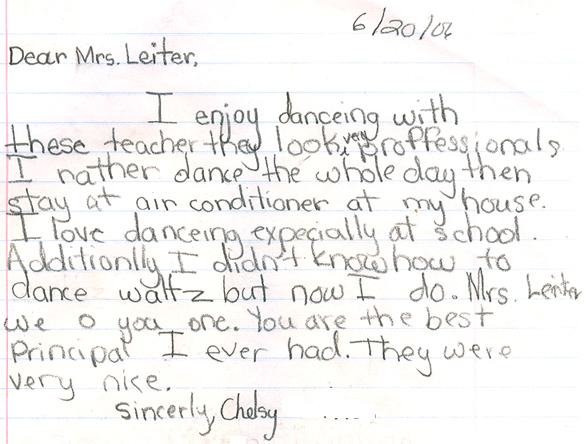 6/20/06
Dear Mrs. Leiter,
I enjoy danceing with
these teacher they look very proffessionals
I rather dance the whole day then
stay at air conditioner at my house.
I love danceing expecially at school.
Additionlly I didn't know how to
dance waltz but now I do. Mrs. Leiter
we o you one. You are the best
Principal I ever had. They were
very nice.
Sincerly, Chelsy ....